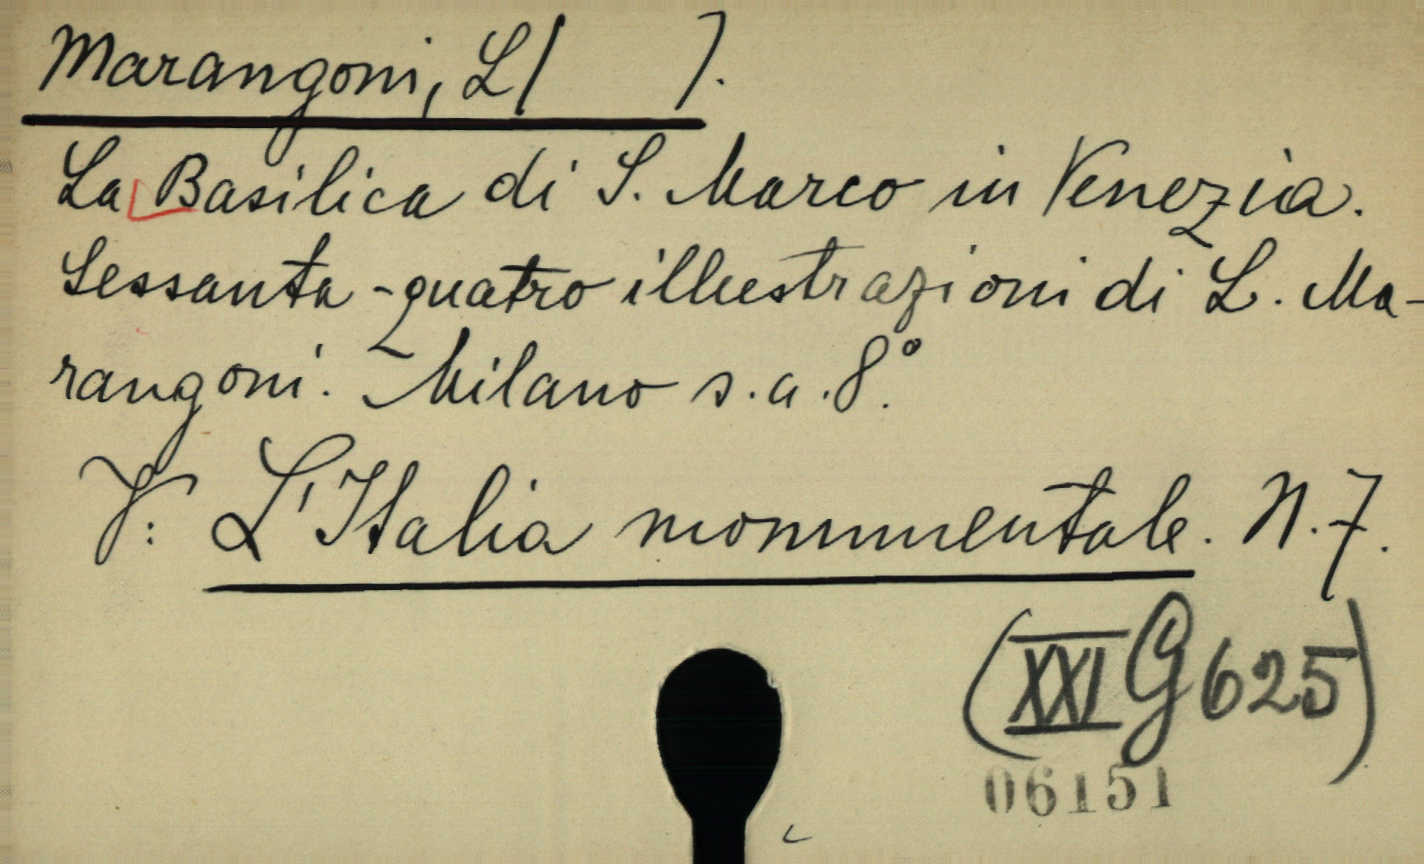 Marangoni, L[ ].
La Basilica di S. Marco in Venezia.
Sessanta-quatro illustrazioni di L. Ma-
rangoni. Milano s.a. 8°.
V: L'Italia monumentale. N. 7.
(XXI G 625)
06151